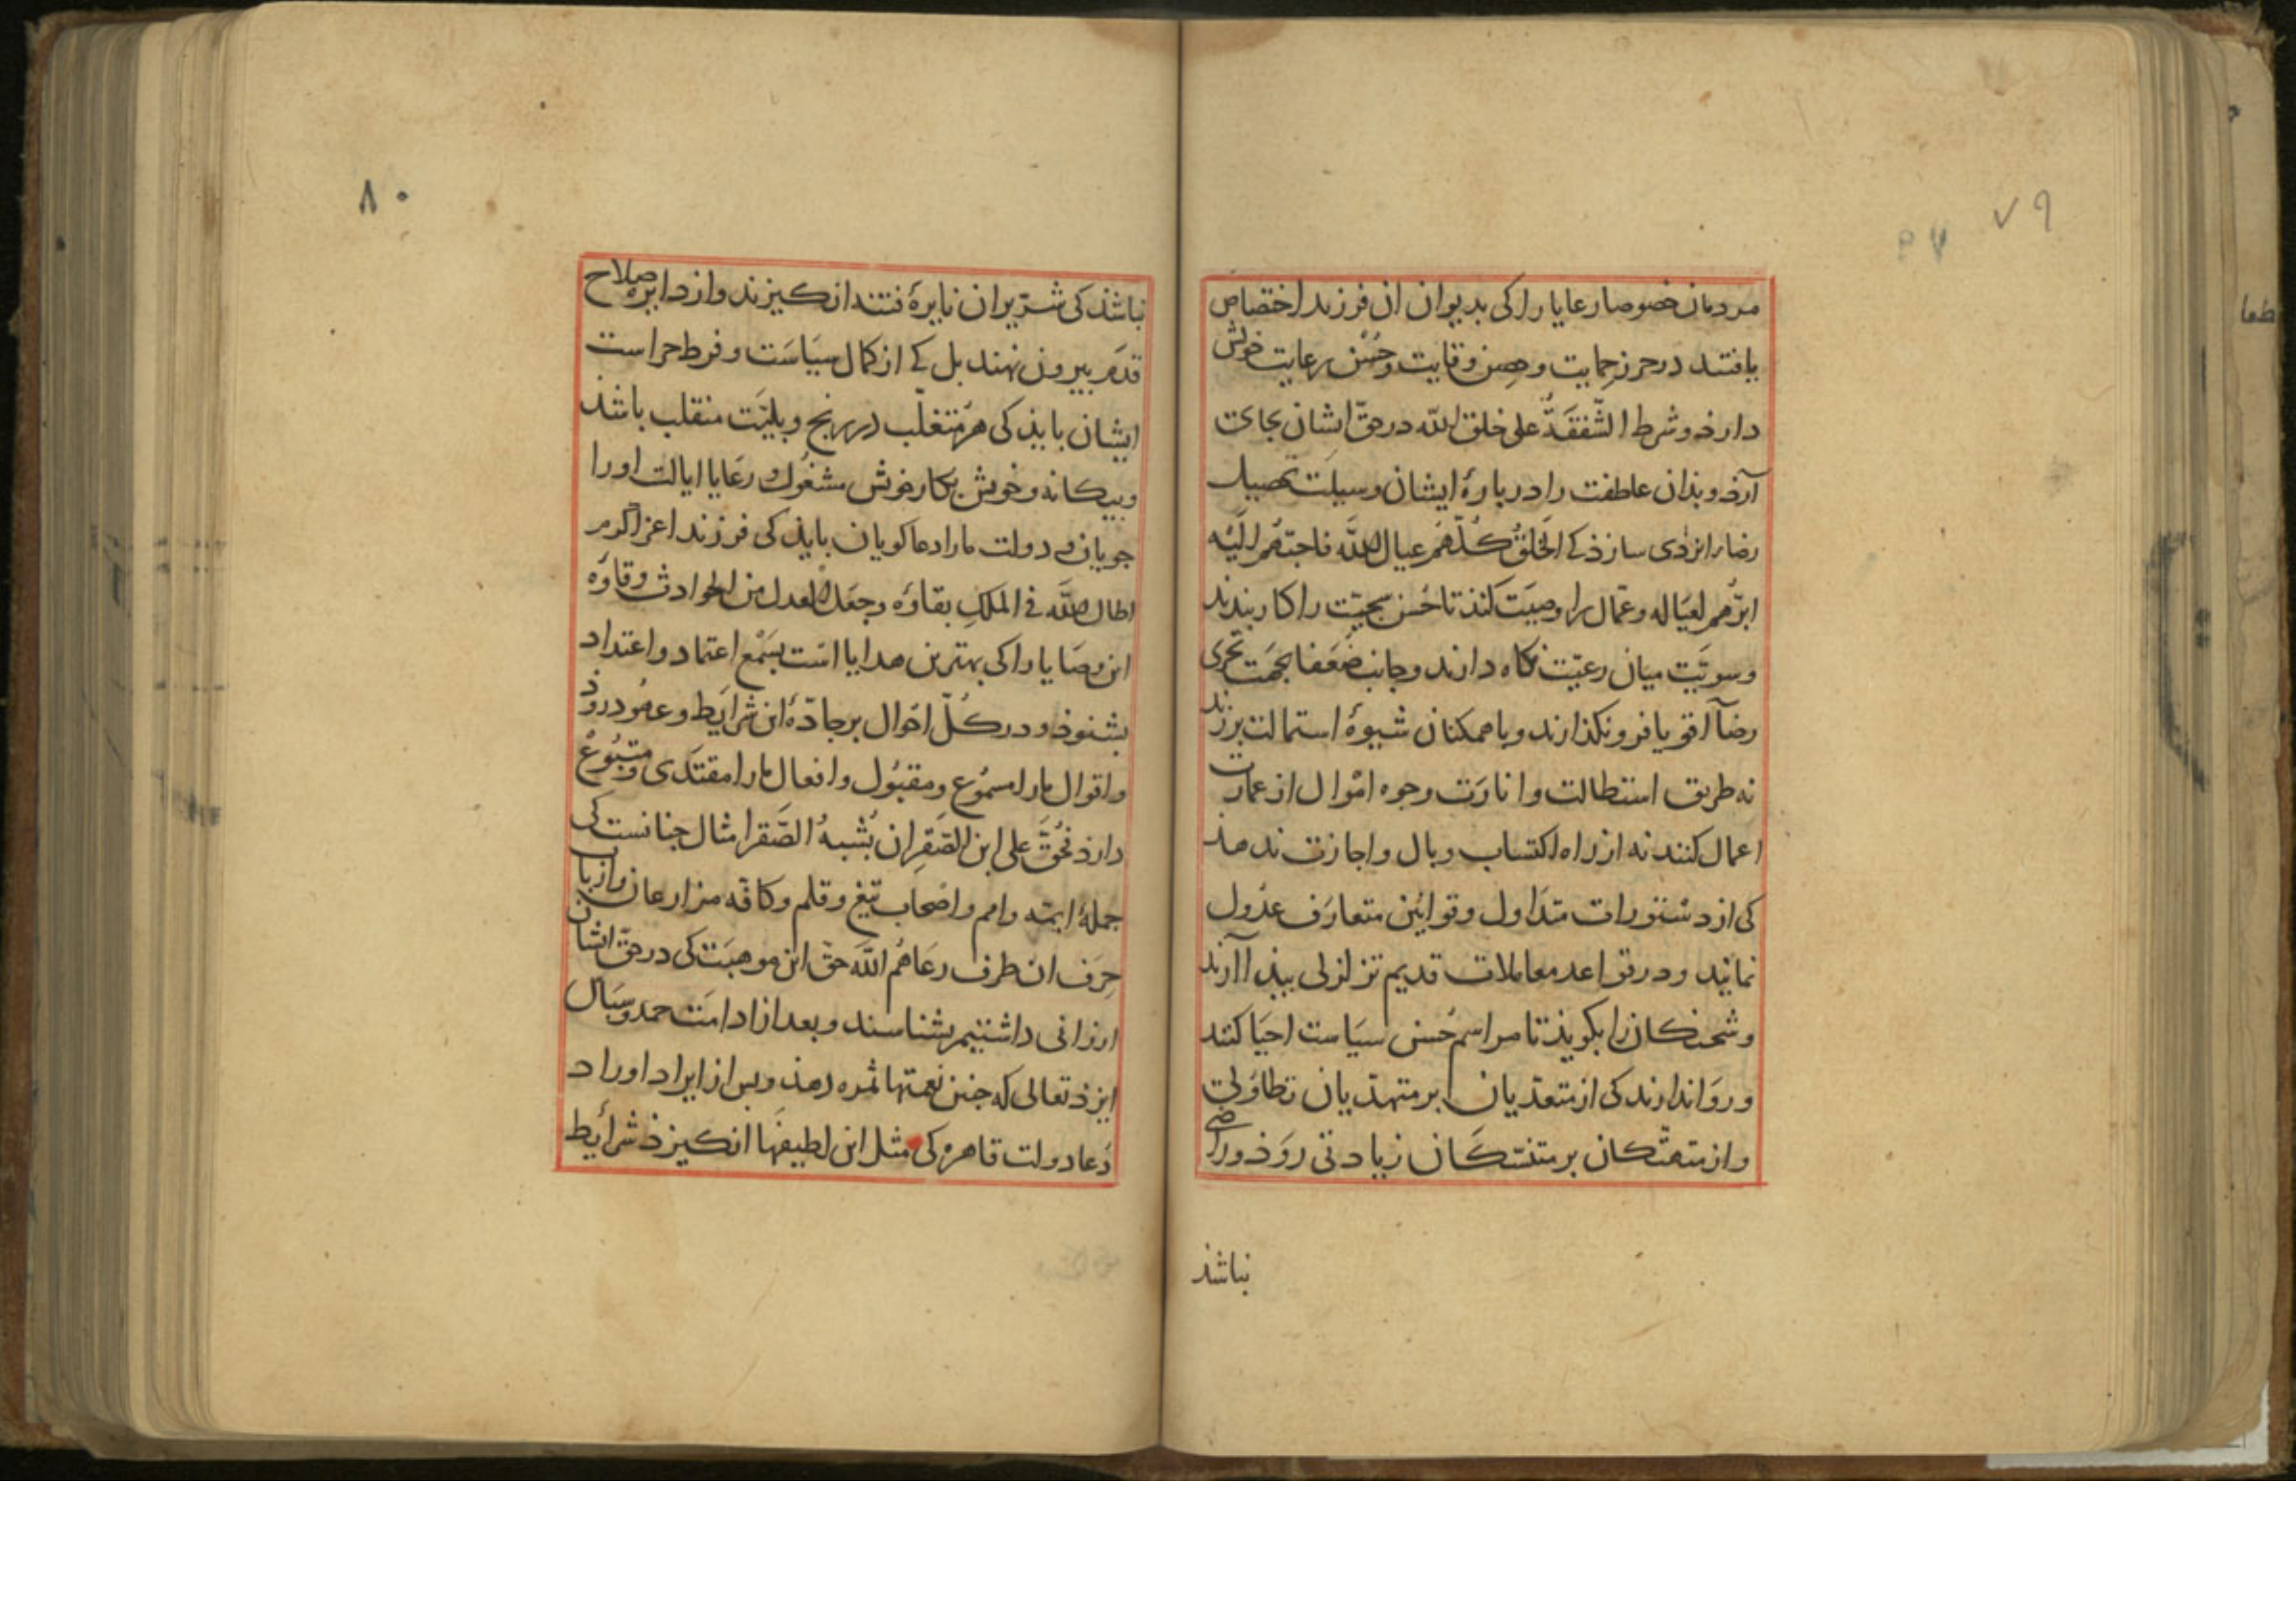 ۷۹
مردمان خصوصا رعایا را کی بدیوان ان فرزند اختصاص
یافتند در حرز حمایت و حِصن وقایت و حُسْن رعایت خویش
دارذ و شرط الشَّفَقَةُ علی خلق الله در حقّ ایشان بجای
آرذ و بذان عاطفت را در بارهٔ ایشان وسیلت تحصیل
رضاء ایزدی سازذ کے الخَلقُ کُلّهُم عیال الله فاحبّهُم الَیْه
ابرّهُم لعیَاله و عمّال را وصیَت کنذ تا حُسن سجیّت را کار بندند
و سویَّت میان رعیّت نکاه دارند و جانب ضُعَفا بجهَت تحرّی
رضآ اقویا فرو نکذارند و با همکنان شیوهٔ استمالت برزند
نه طریق استطالت و انارَت وجوه امْوال از عمارت
اعمال کنند نه از راه اکتساب وبال و اجازت ندهذ
کی از دستورات متدَاول و قوانین متعارَف عدُول
نمایند و در قواعد معاملات قدیم تزلزلی بیذ اآرند
و شحنکان را بکویذ تا مراسم حُسن سیَاست احیَا کنند
و روَا ندارند کی از متعدّیان بر متهدّیان تطاوُلی
و از متهتّکان بر متنسّکان زیادتی روَذ و راضی
نباشذ
۸۰
نباشذ کی شرّیران نایرهٔ فتنه انکیزند و از دایره صلاح
قدَم بیرون نهند بل کے از کمال سیَاسَت و فرط حراست
ایشان بایذ کی هر مُتغلّب در رنج و بلیّت منقلب باشذ
و بیکانه و خویش بکار خویش مشغُول رعَایا ایالت او را
جویان و دولت ما را دعا کویان بایذ کی فرزند اعز اکرم
اطال الله فی المُلکِ بقاؤه و جعَل العدل من الحوادث وقاؤه
این وصَایا را کی بهترین هدایا است بسَمْع اعتماد و اعتداد
بشنوذ و در کُلّ احوال بر جادّهٔ این شرایَط و عهُود روذ
و اقوال ما را مسمُوع و مقبُول و افعال ما را مقتدَی و متبُوعْ
دارذ فحُقَّ علی ابن الصَّقرِ ان یُشبهُ الصَّقرا مثال چنانست کی
جملهٔ ایمّه و امم و اصْحاب تیغ و قلم و کافّه مزارعان و ارباب
حِرَف ان طرف رعَاهُم اللَّه حقّ این موهبَت کی در حقّ ایشان
ارزانی داشتیم بشناسند و بعد از ادامَت حمد و سپَاس
ایزذ تعالی که چنین نعمتها ثمره دهذ و پس از ایراد اوراد
دُعا دولت قاهره کی مثل این لطیفهَا انکیزذ شرایط